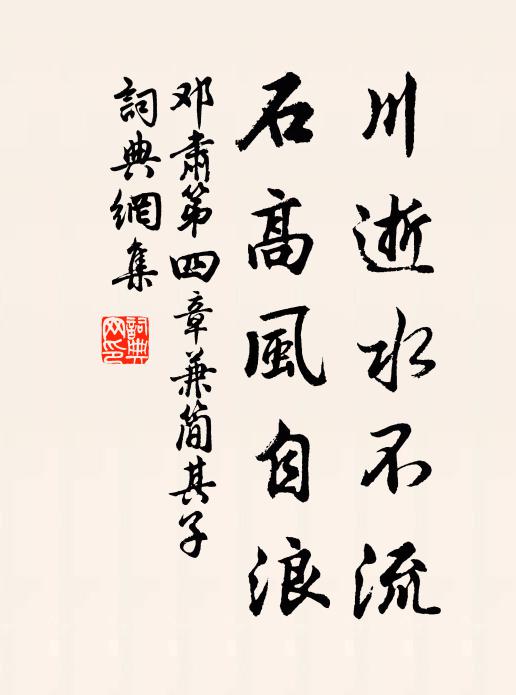 川逝水不流
石高風自浪
邓肅第四章兼简其子
詞典網集
詞典网印